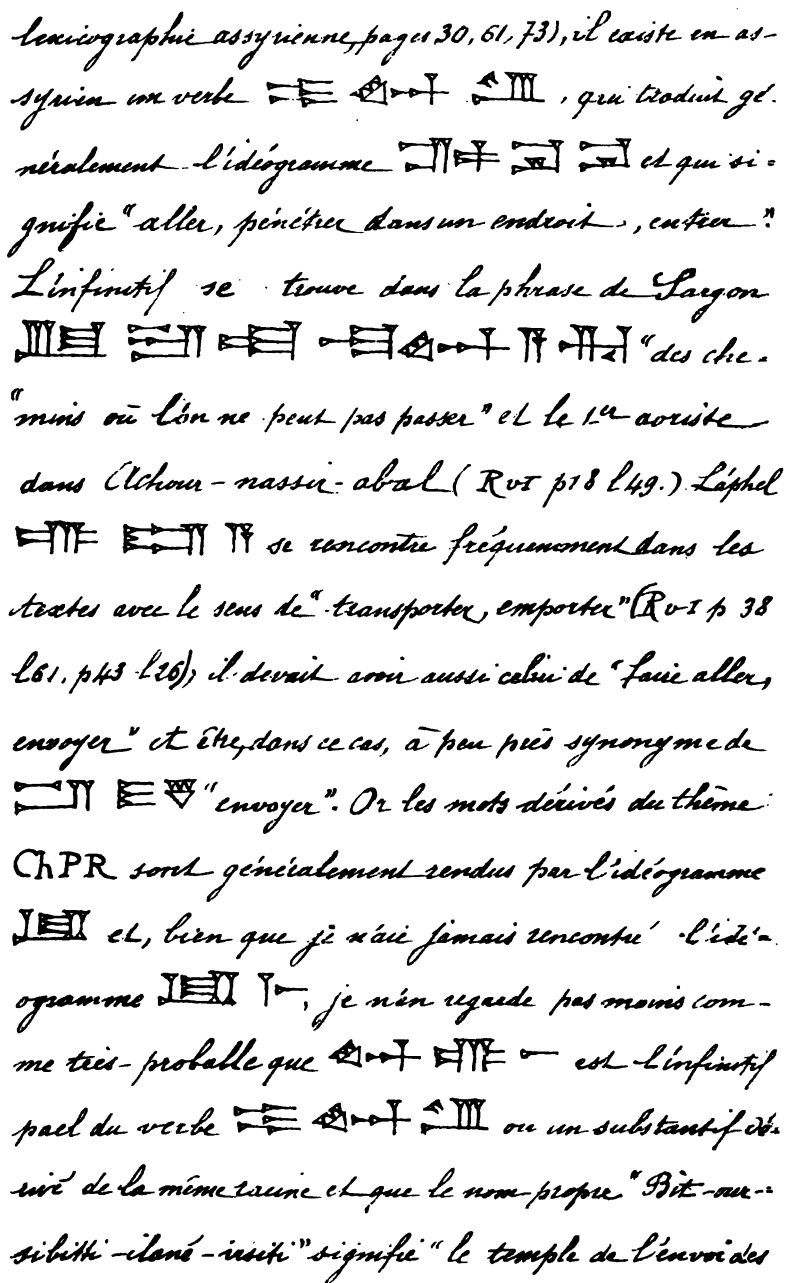 lexicographie assyrienne, pages 30, 61, 73), il existe en as-
syrien un verbe , qui traduit gé-
néralement l'idéogramme et qui si-
gnifie "aller, pénétrer dans un endroit, entrer".
L'infinitif se trouve dans la phrase de Sargon
"des che-
"mins où l'on ne peut pas passer" et le 1er aoriste
dans Achour-nassir-abal (R v I p 18 l 49.) L'aphel
se rencontre fréquemment dans les
textes avec le sens de "transporter, emporter" (R v I p 38
l 61, p 43 l 26); il devait avoir aussi celui de "faire aller,
envoyer" et être, dans ce cas, à peu près synonyme de
"envoyer". Or les mots dérivés du thème
ChPR sont généralement rendus par l'idéogramme
et, bien que je n'aie jamais rencontré l'idé-
ogramme , je n'en regarde pas moins com-
me très-probable que est l'infinitif
pael du verbe ou un substantif dé-
rivé de la même racine et que le nom propre "Bit-our-
sibitti-ilané-irsiti" signifie "le temple de l'envoi des